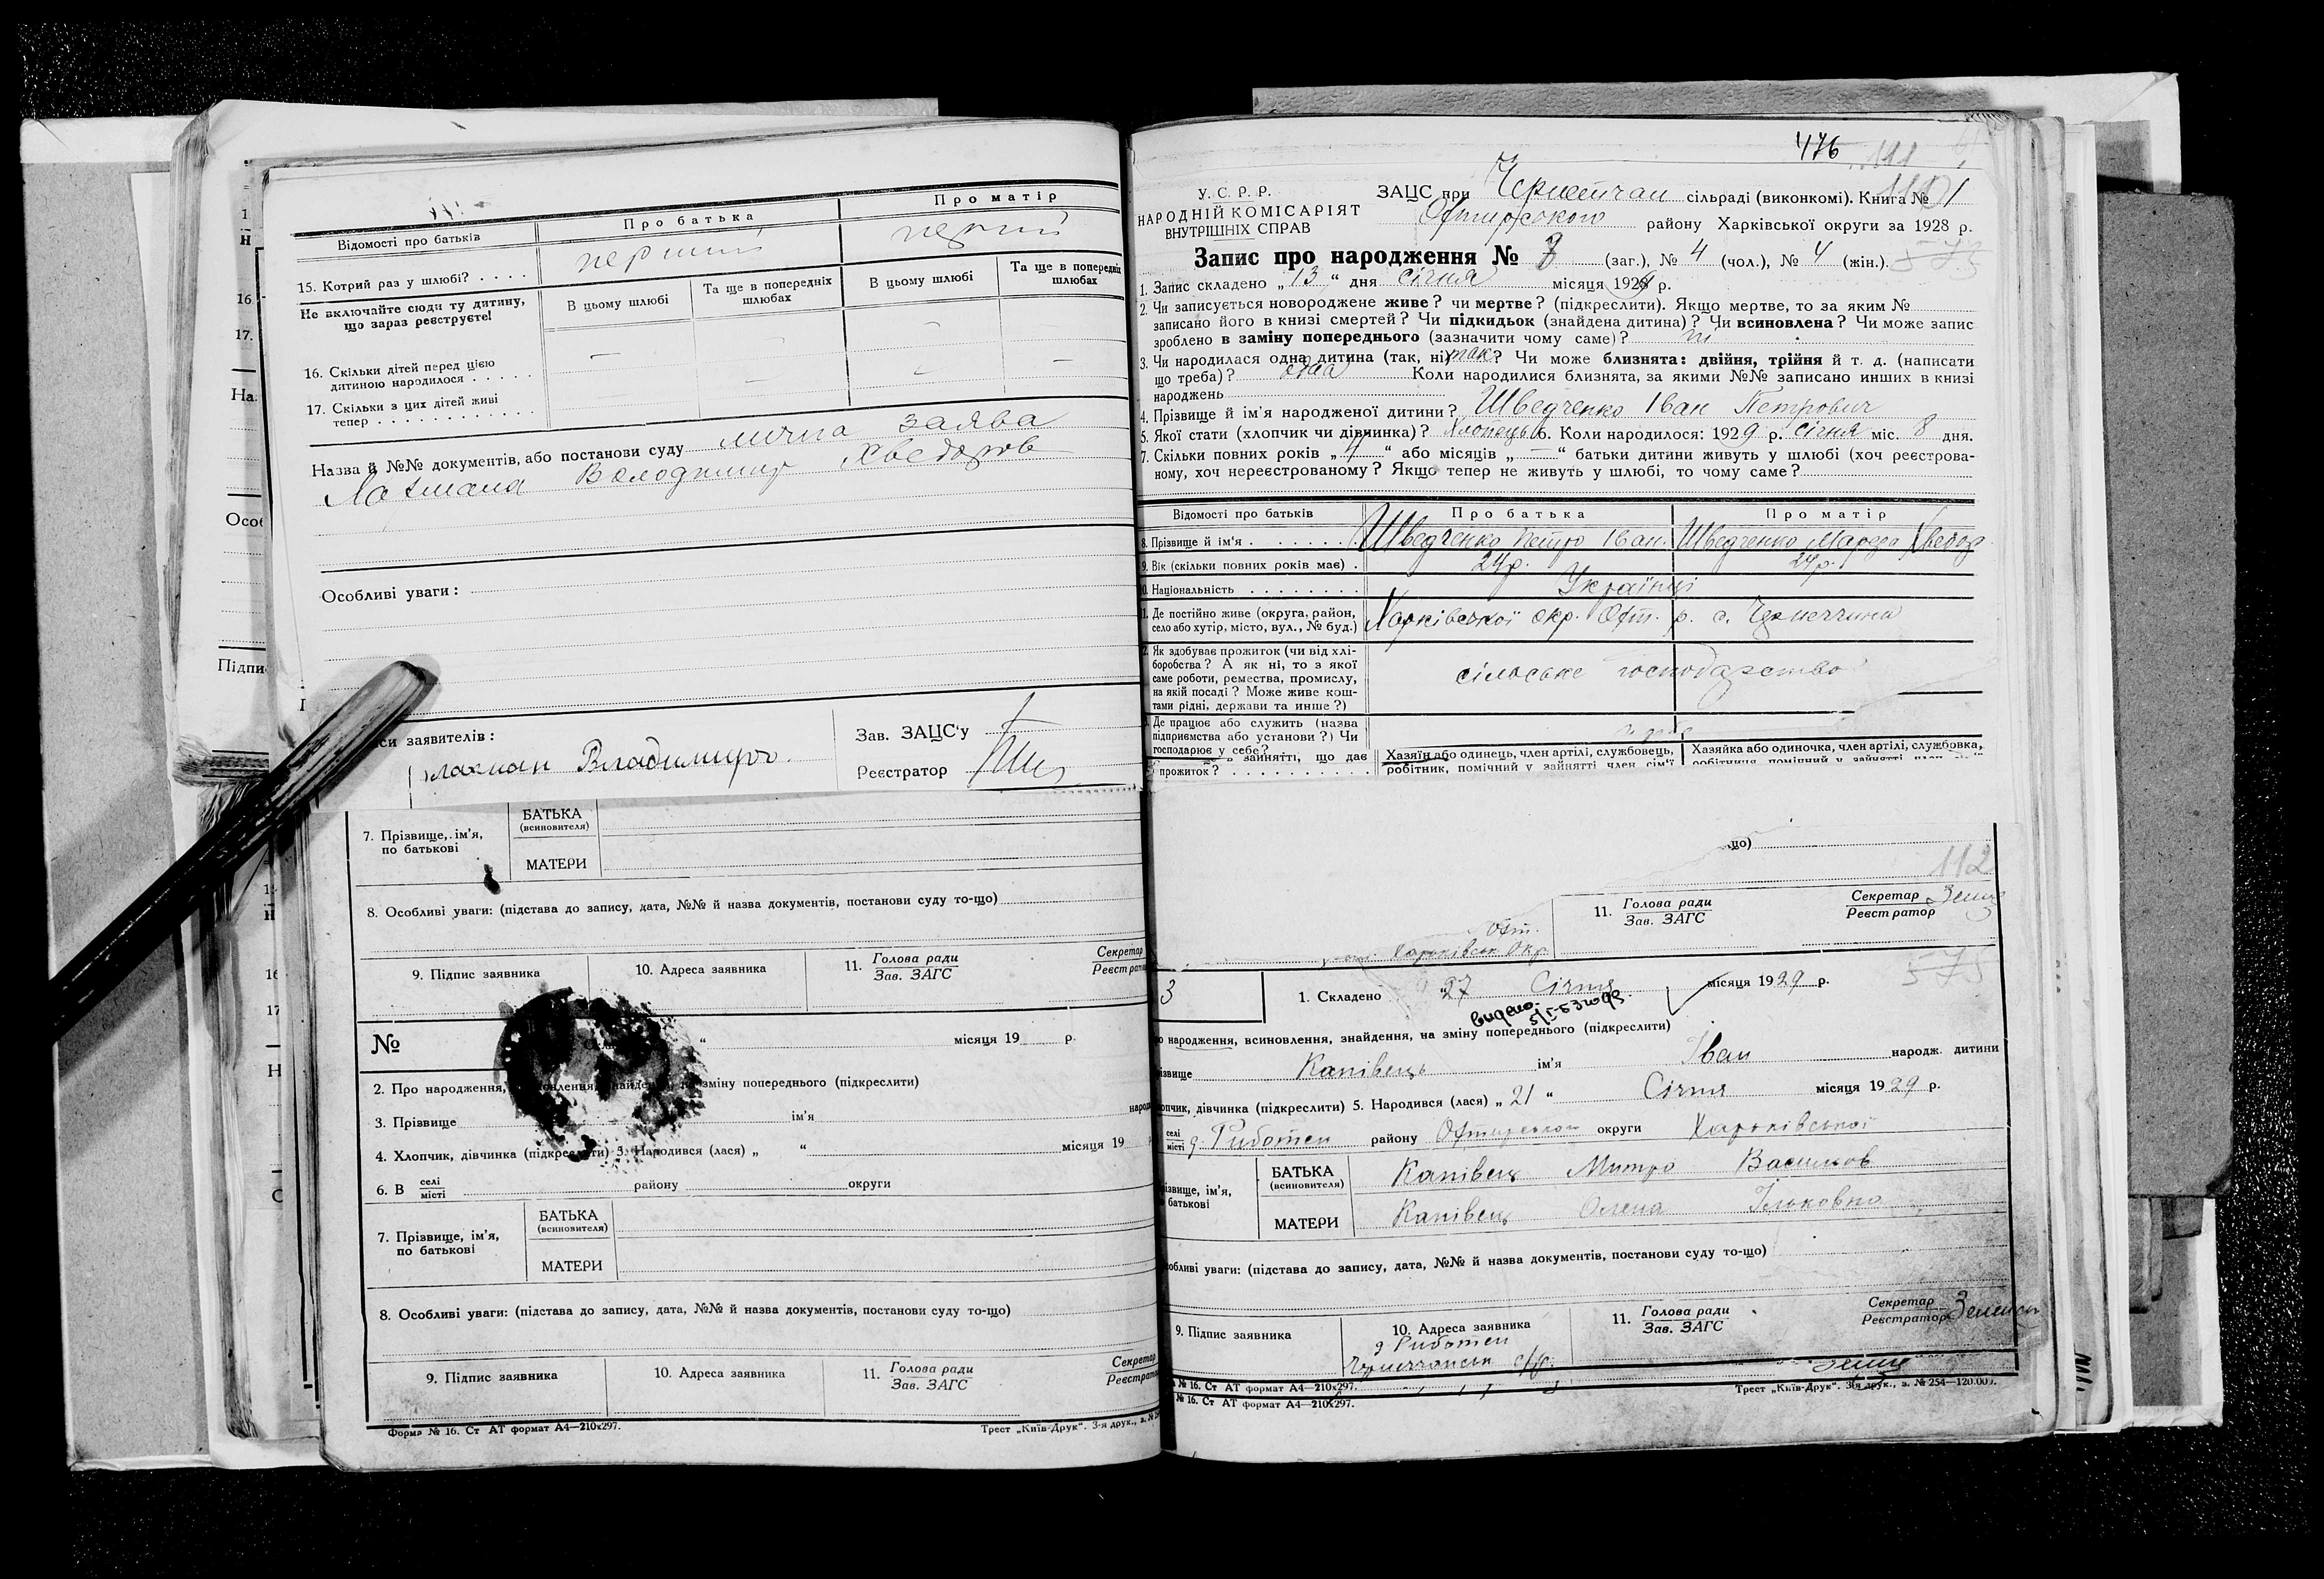 Відомості про батьків
Про батька
Про матір
15. Котрий раз у шлюбі? . . . .
перший
перший
Не включайте сюди ту дитину,
що зараз реєструєте!
В цьому шлюбі
Та ще в попередніх
шлюбах
В цьому шлюбі
Та ще в попередніх
шлюбах
16. Скільки дітей перед цією
дитиною народилося . . . . .
17. Скільки з цих дітей живі
тепер . . . . . . . . . . . .
Назва й №№ документів, або постанови суду лична заява
Лахмана Володимир Хведоров
Особливі уваги:
си заявителів:
Лахман Владимиръ.
Зав. ЗАЦС'у
Реєстратор
7. Прізвище, ім'я,
по батькові
БАТЬКА
(всиновителя)
МАТЕРИ
8. Особливі уваги: (підстава до запису, дата, №№ й назва документів, постанови суду то-що)
9. Підпис заявника
10. Адреса заявника
11. Голова ради
Зав. ЗАГС
Секретар
№
місяця 19 р.
2. Про народження, зміну попереднього (підкреслити)
3. Прізвище ім'я
4. Хлопчик, дівчинка (підкреслити) 5. Народився (лася) „ “ місяця 19
6. В селі
місті
району округи
7. Прізвище, ім'я,
по батькові
БАТЬКА
(всиновителя)
МАТЕРИ
8. Особливі уваги: (підстава до запису, дата, №№ й назва документів, постанови суду то-що)
9. Підпис заявника
10. Адреса заявника
11. Голова ради
Зав. ЗАГС
Форма № 16. Ст АТ формат А4—210х297.
Трест „Київ-Друк“. 3-я друк.,
476
У. С. Р. Р.
НАРОДНІЙ КОМІСАРІЯТ
ВНУТРІШНІХ СПРАВ
ЗАЦС при сільраді (виконкомі). Книга № 1
району Харківської округи за 1928 р.
Запис про народження № (заг.), № 4 (чол.), № 4 (жін.).
1. Запис складено „13“ дня січня місяця 1929 р.
2. Чи записується новороджене живе? чи мертве? (підкреслити). Якщо мертве, то за яким №
записано його в книзі смертей? Чи підкидьок (знайдена дитина)? Чи всиновлена? Чи може запис
зроблено в заміну попереднього (зазначити чому саме)? ні
3. Чи народилася одна дитина (так, ні) так? Чи може близнята: двійня, трійня й т. д. (написати
що треба)? одна Коли народилися близнята, за якими №№ записано инших в книзі
народжень
4. Прізвище й ім'я народженої дитини? Шведченко Іван Петрович
5. Якої стати (хлопчик чи дівчинка)? Хлопець 6. Коли народилося: 1929 р. січня міс. 8 дня.
7. Скільки повних років „ “ або місяців „—“ батьки дитини живуть у шлюбі (хоч реєстрова-
ному, хоч нереєстрованому? Якщо тепер не живуть у шлюбі, то чому саме?
Відомості про батьків
Про батька
Про матір
8. Прізвище й ім'я . . . . . .
Шведченко Петро Іван.
Шведченко Хведор
9. Вік (скільки повних років має) .
24р.
24р.
10. Національність . . . . . . . .
Українці
11. Де постійно живе (округа, район,
село або хутір, місто, вул., № буд.)
Харківської окр. Охт. р. с. Чернеччина
Як здобуває прожиток (чи від хлі-
боробства? А як ні, то з якої
саме роботи, ремества, промислу,
на якій посаді? Може живе кош-
тами рідні, держави та инше?)
сільське господарство
Де працює або служить (назва
підприємства або установи?) Чи
господарює у себе?
зайнятті, що дає
прожиток? . . . . . . . . . .
Хазяїн або одинець, член артілі, службовець,
робітник, помічний у зайнятті член сім'ї
Хазяйка або одиночка, член артілі, службовка,
що)
112
11. Голова ради
Зав. ЗАГС
Секретар
Реєстратор
Охт.
Харьківськ Окр.
3
1. Складено 27 Січня місяця 1929 р.
видано
народження, всиновлення, знайдення, на зміну попереднього (підкреслити)
Канівець ім'я Іван народж. дитини
хлопчик, дівчинка (підкреслити) 5. Народився (лася) „21“ Січня місяця 1929 р.
селі
місті
Риботен району Охтирського округи Харьківської
БАТЬКА
(всиновителя)
Канівець Митро Васильов
МАТЕРИ
Канівець Олена Ільковна
уваги: (підстава до запису, дата, №№ й назва документів, постанови суду то-що)
9. Підпис заявника
10. Адреса заявника
Риботен
11. Голова ради
Зав. ЗАГС
Секретар
Реєстратор
№ 16. Ст АТ формат А4—210х297.
Трест „Київ-Друк“. 3-я друк., з. № 254—120.000.
№ 16. Ст АТ формат А4—210х297.